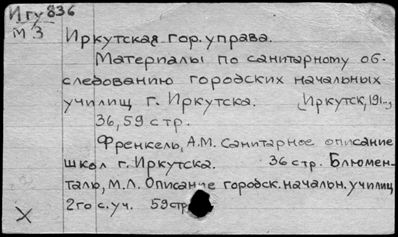 Игу 836
М 3
Иркутская гор. управа.
Материалы по санитарному об-
следованию городских начальных
училищ г. Иркутска. [Иркутск, 191-,]
36, 59 стр.
Френкель, А.М. Санитарное описание
школ г. Иркутска. 36 стр. Блюмен-
таль, М.Л. Описание городск. начальн. училищ
2го с. уч. 59 стр
X